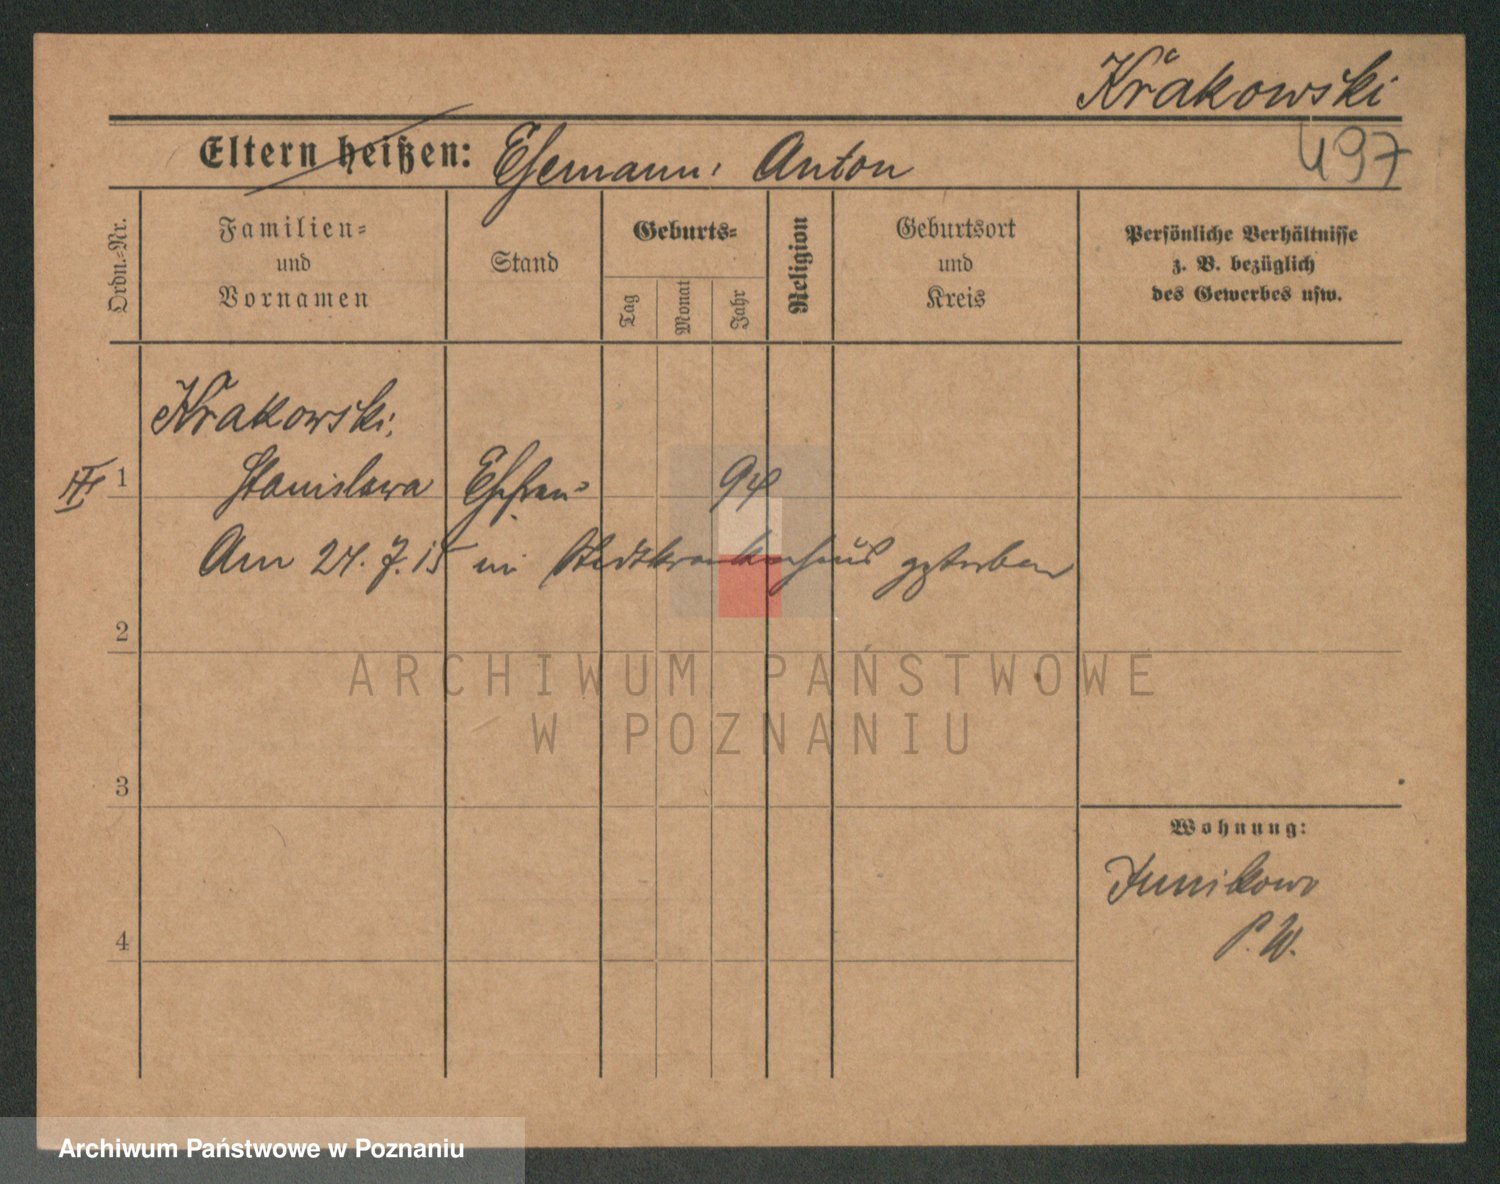 Krakowski
497
Eltern heißen: Ehemann: Anton
Ordn.=Nr.
Familien=
und
Vornamen
Stand
Geburts=
Tag
Monat
Jahr
Religion
Geburtsort
und
Kreis
Persönliche Verhältnisse
z. B. bezüglich
des Gewerbes usw.
Krakowski,
1 Stanislawa Ehefrau 94
Am 24. 7. 15 im Stadtkrankenhaus gestorben
2
3
4
Wohnung:
Junikowo
P. W.
ARCHIWUM PAŃSTWOWE
W POZNANIU
Archiwum Państwowe w Poznaniu